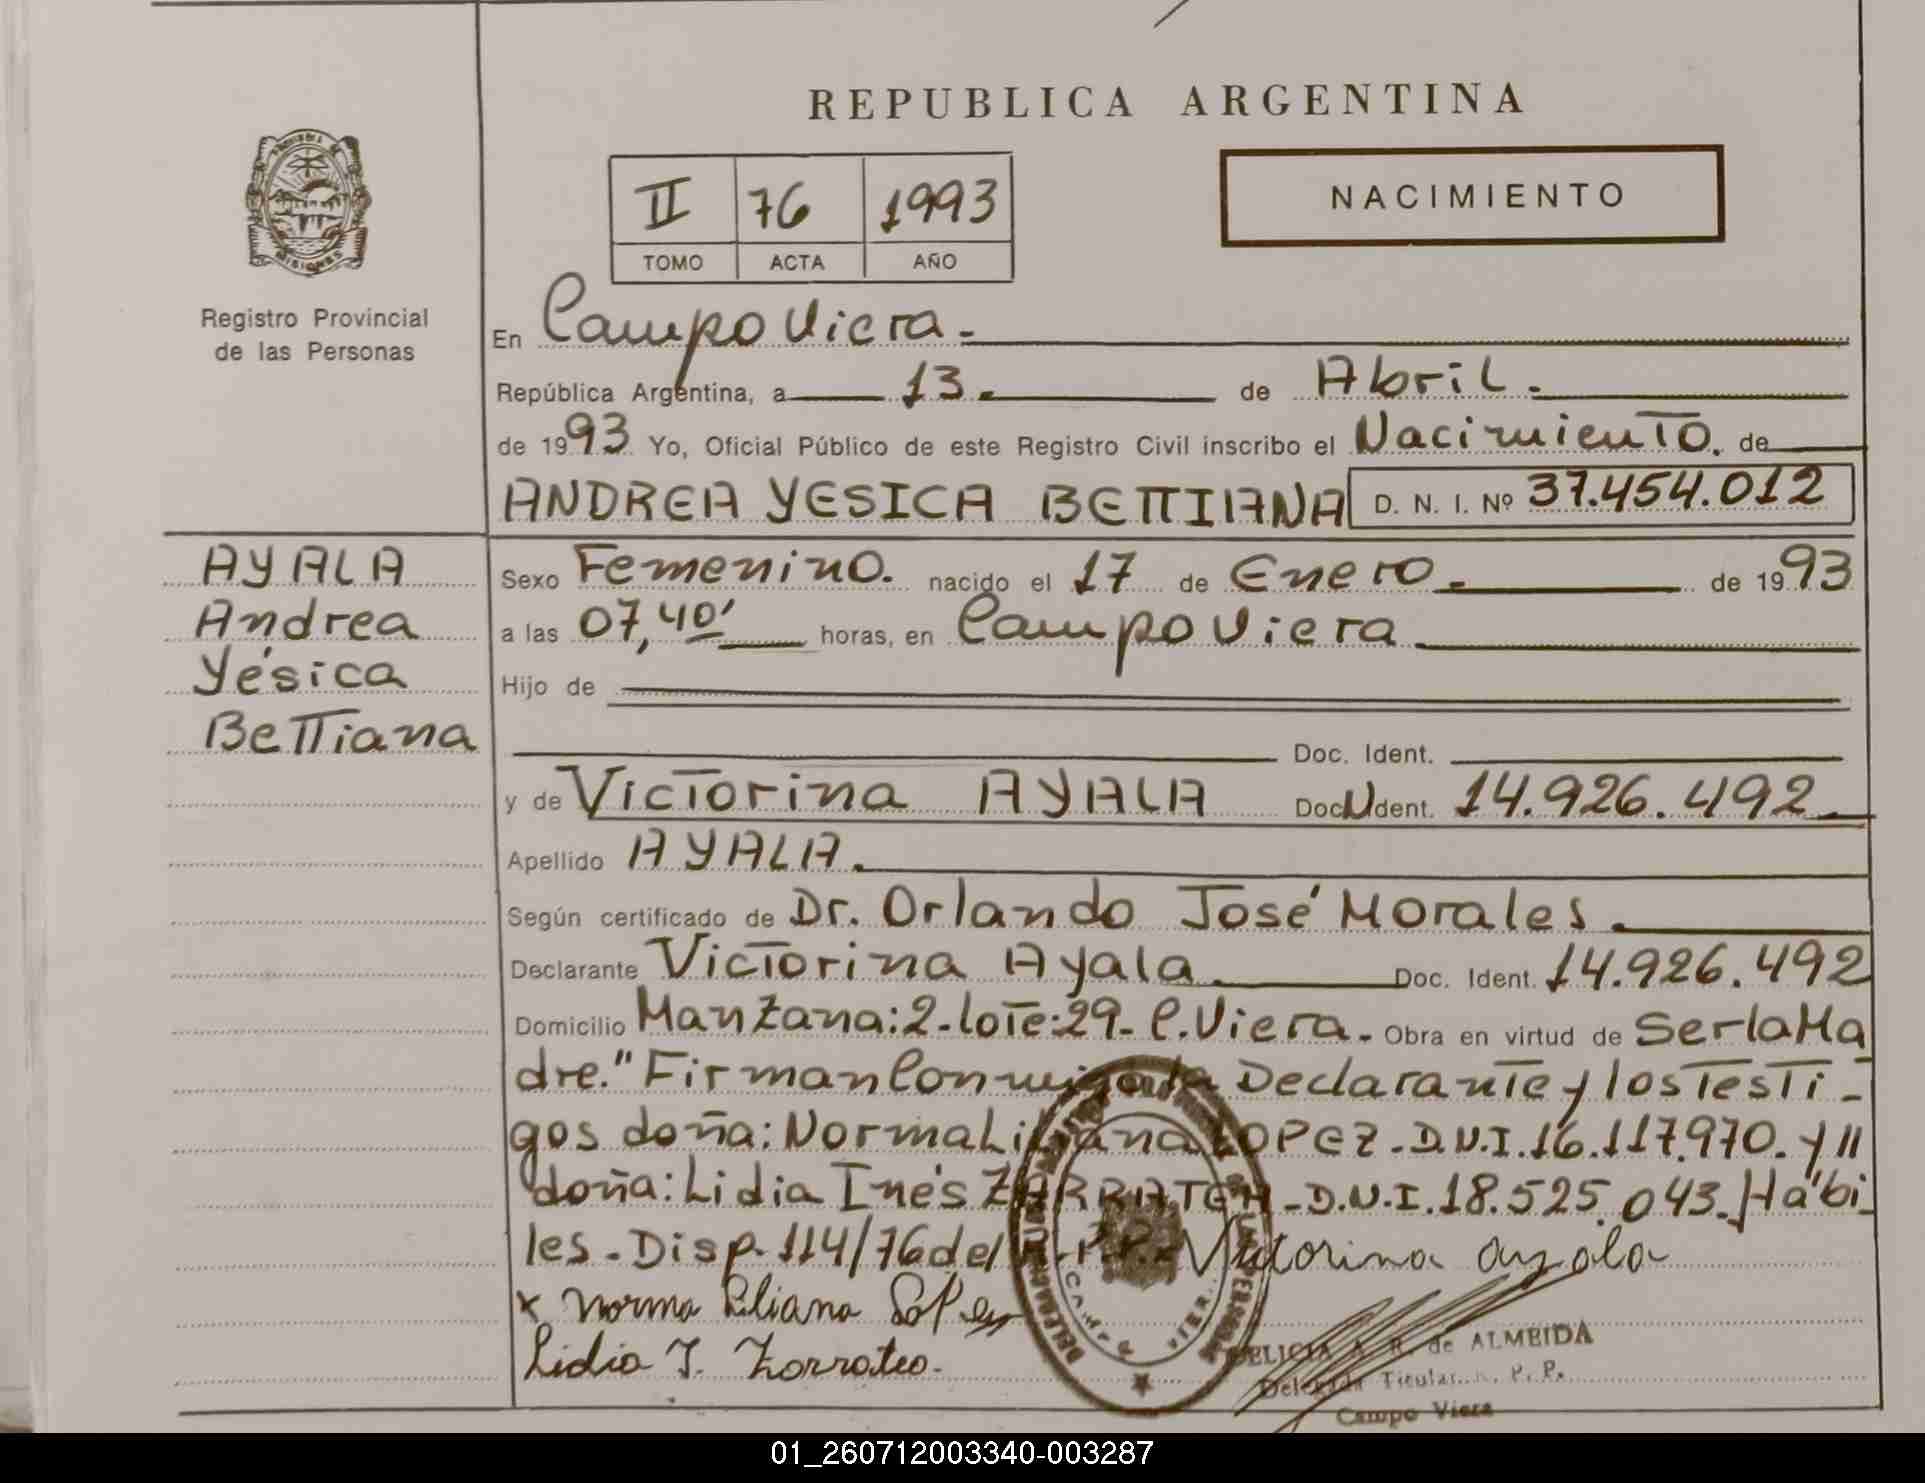 REPUBLICA ARGENTINA
II 76 1993
TOMO ACTA AÑO
NACIMIENTO
MISIONES
Registro Provincial
de las Personas
En Campo Viera.
República Argentina, a 13. de Abril.
de 1993 Yo, Oficial Público de este Registro Civil inscribo el Nacimiento. de
ANDREA YESICA BETTIANA D. N. I. Nº 37.454.012
AYALA
Andrea
Yésica
Bettiana
Sexo Femenino. nacido el 17 de Enero. de 1993
a las 07,40' horas, en Campo Viera
Hijo de
Doc. Ident.
y de Victorina AYALA Doc. Ident. 14.926.492
Apellido AYALA.
Según certificado de Dr. Orlando José Morales.
Declarante Victorina Ayala Doc. Ident. 14.926.492
Domicilio Manzana:2-lote:29- C.Viera. Obra en virtud de Ser la Ma
dre." Firman Conmigo la Declarante y los Testi-
gos doña: Norma Liliana LOPEZ-D.N.I.16.117.970. y //
doña: Lidia Inés D.N.I.18.525.043. Hábi
les-Disp. 114/76 del Victorina ayala
x Norma Liliana Lopez
Lidia I.
DELICIA A. R. de ALMEIDA
Delegada Titular R. P. P.
Campo Viera
CAMPO VIERA
01_260712003340-003287